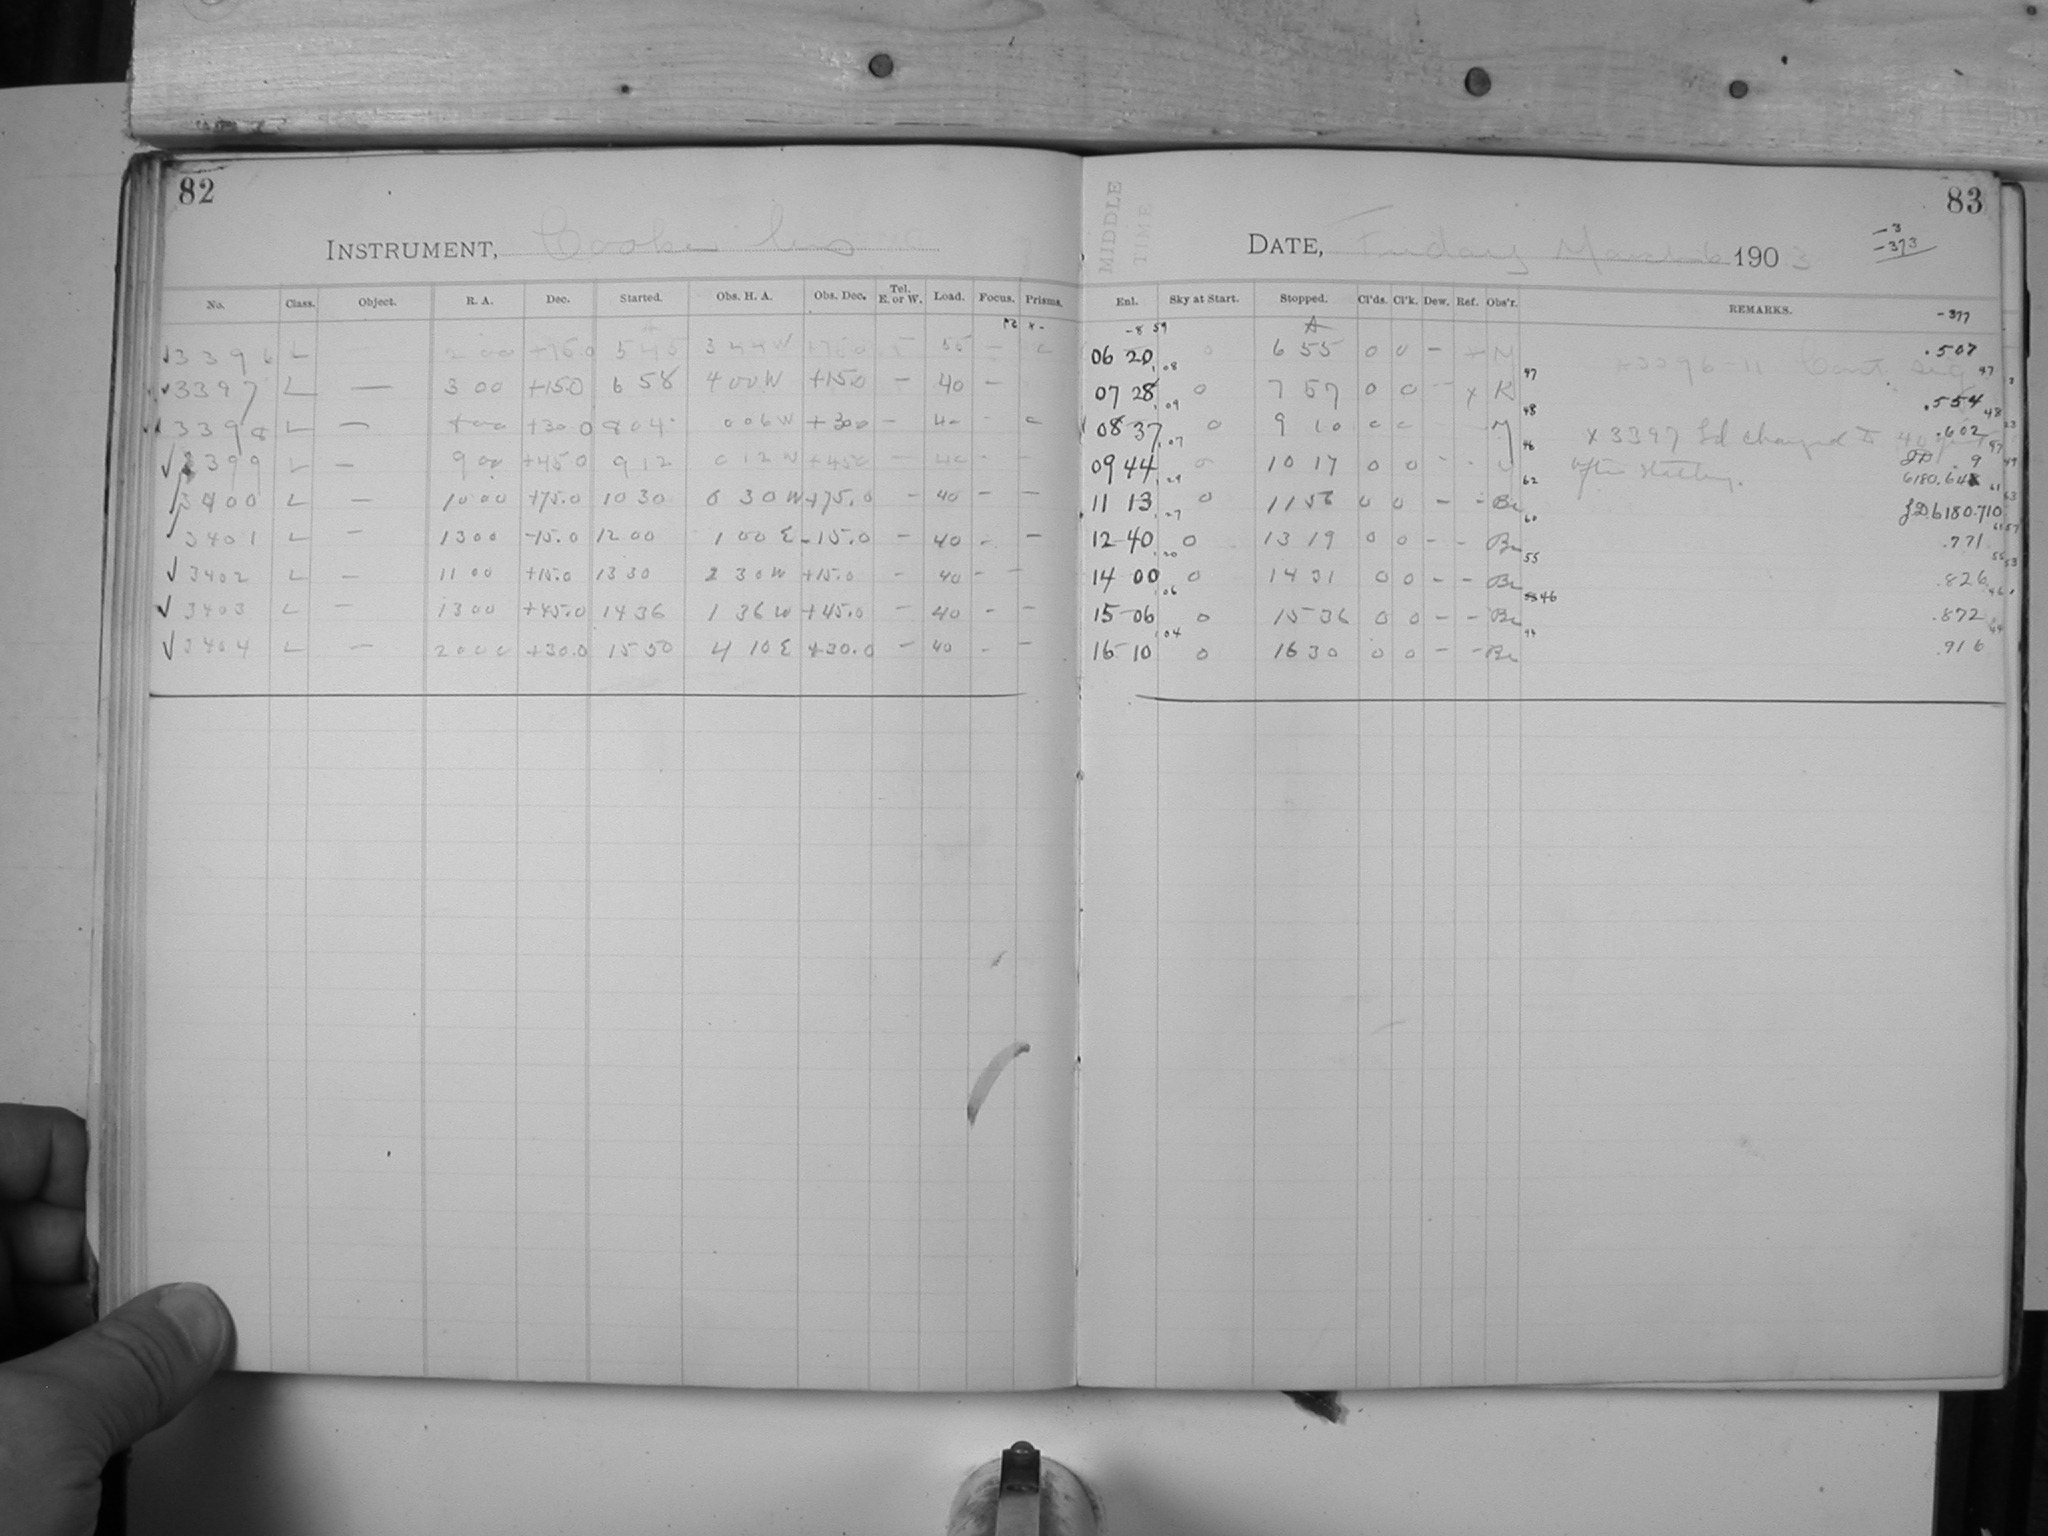 82
INSTRUMENT, Cooke lens
No. Class. Object. R. A. Dec. Started. Obs. H. A. Obs. Dec. Tel. E. or W. Load. Focus. Prisms.
✓3396 L 2 00 +75.0 5 45 3 44 W +75.0 - 55 -
✓3397 L — 3 00 +15.0 6 58 4 00 W +15.0 - 40 -
3398 L — +30.0 8 04 0 06 W +30.0 - 40 -
✓3399 L — 9 00 +45.0 9 12 0 12 W +45.0 - 40 - -
3400 L — 10 00 +75.0 10 30 0 30 W +75.0 - 40 - -
3401 L — 13 00 -15.0 12 00 1 00 E -15.0 - 40 - -
✓3402 L — 11 00 +15.0 13 30 2 30 W +15.0 - 40 - -
✓3403 L — 13 00 +45.0 14 36 1 36 W +45.0 - 40 - -
✓3404 L — 20 00 +30.0 15 50 4 10 E +30.0 - 40 - -
83
MIDDLE TIME
DATE, Friday March 6 1903
-3
-373
Enl. Sky at Start. Stopped. Cl'ds. Cl'k. Dew. Ref. Obs'r. REMARKS.
-377
-8 59
06 20 0 6 55 0 0 - M 3396-11 Cont. .507
07 28 0 7 57 0 0 - x K .554
08 37 0 9 10 0 0 M x 3397 Ld changed to 40 .602
09 44 0 10 17 0 0 - - after setting. 6180.648
11 13 0 11 56 0 0 - - Be J.D. 6180.710
12 40 0 13 19 0 0 - - Be .771
14 00 0 14 31 0 0 - - Be .826
15 06 0 15 36 0 0 - - Be .872
16 10 0 16 30 0 0 - - Be .916